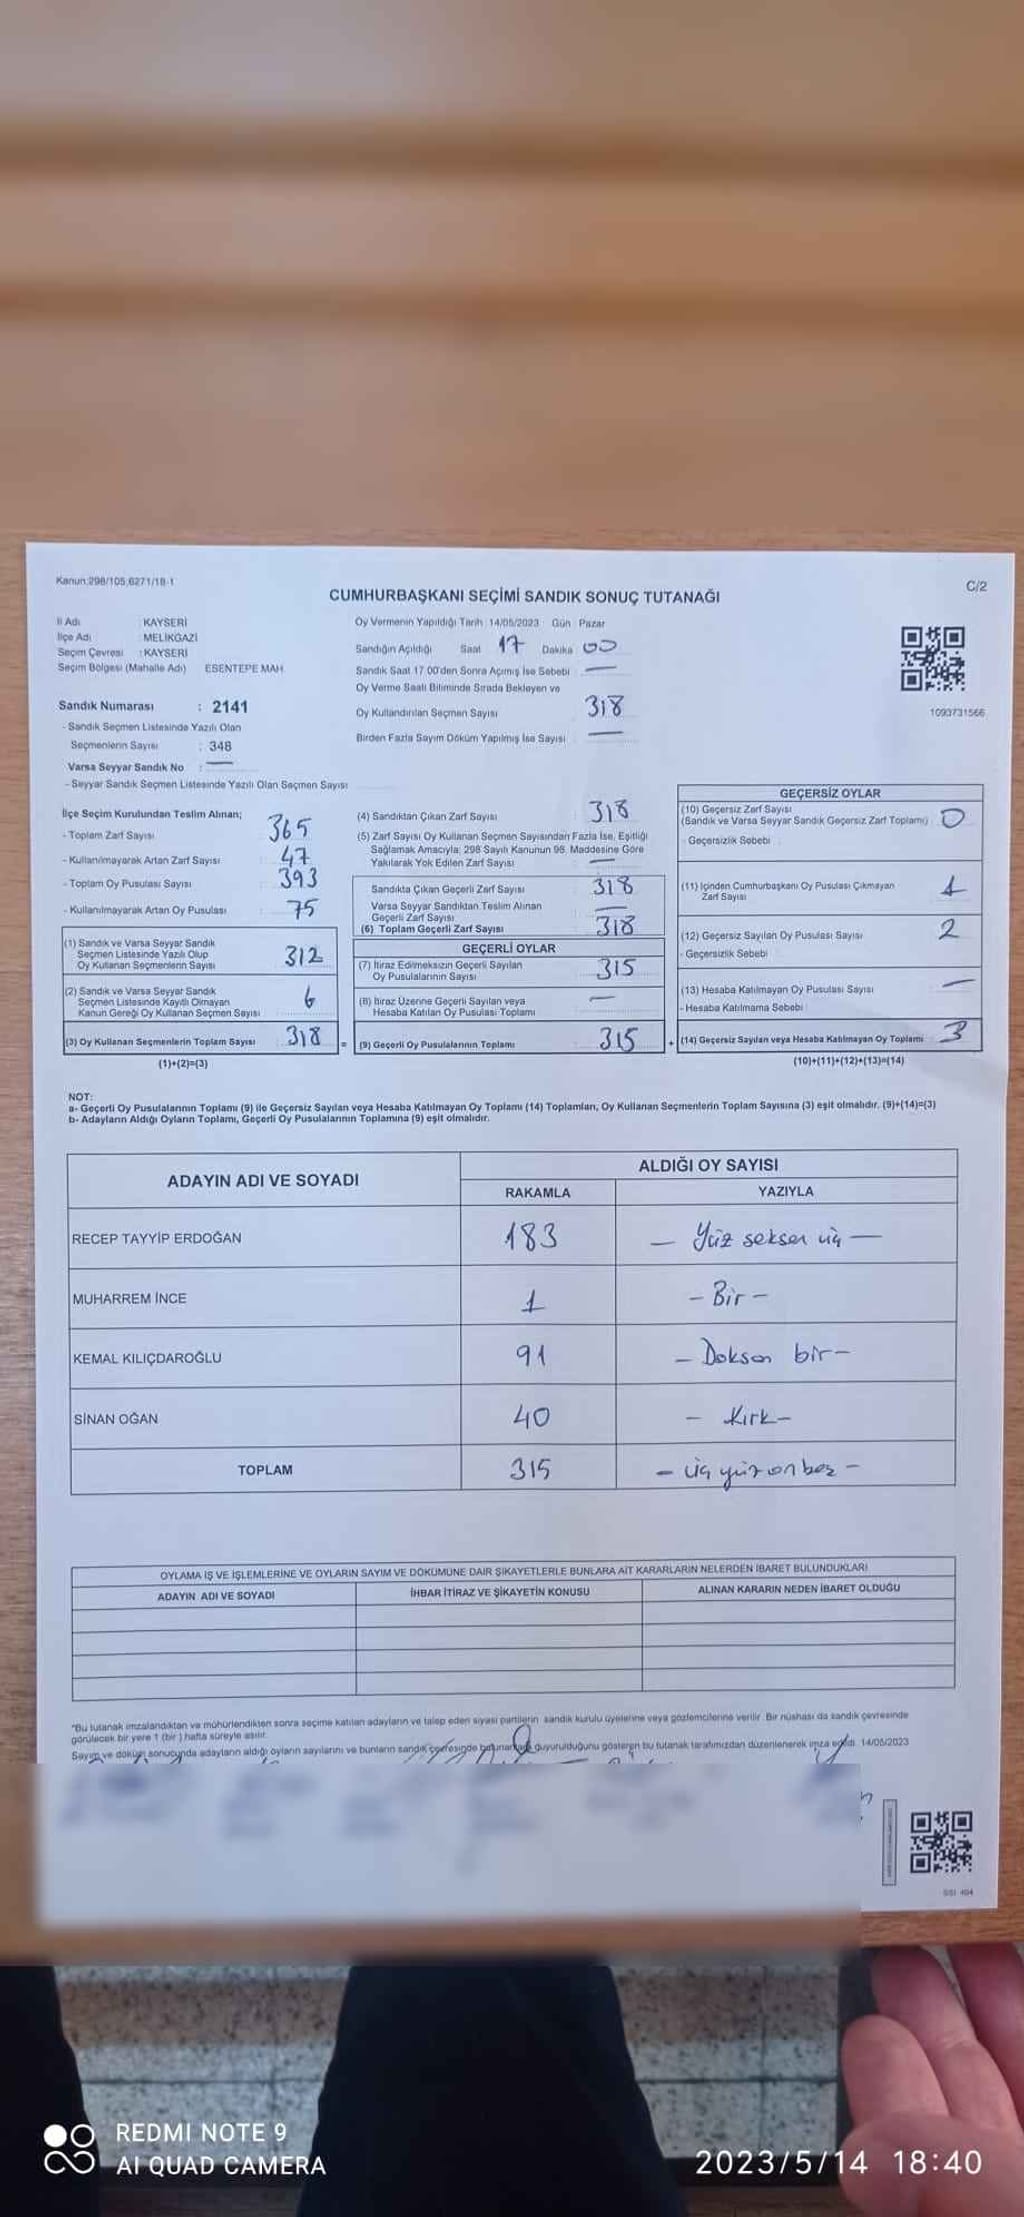 Kanun:298/105,6271/18-1
C/2
CUMHURBAŞKANI SEÇİMİ SANDIK SONUÇ TUTANAĞI
İl Adı : KAYSERİ
İlçe Adı : MELİKGAZİ
Seçim Çevresi : KAYSERİ
Seçim Bölgesi (Mahalle Adı) ESENTEPE MAH
Sandık Numarası : 2141
- Sandık Seçmen Listesinde Yazılı Olan
Seçmenlerin Sayısı : 348
Varsa Seyyar Sandık No : —
- Seyyar Sandık Seçmen Listesinde Yazılı Olan Seçmen Sayısı
Oy Vermenin Yapıldığı Tarih 14/05/2023 Gün Pazar
Sandığın Açıldığı Saat 17 Dakika 00
Sandık Saat 17.00'den Sonra Açımış İse Sebebi —
Oy Verme Saati Bitiminde Sırada Bekleyen ve
Oy Kullandırılan Seçmen Sayısı 318
Birden Fazla Sayım Döküm Yapılmış İse Sayısı —
1093731566
İlçe Seçim Kurulundan Teslim Alınan;
- Toplam Zarf Sayısı 365
- Kullanılmayarak Artan Zarf Sayısı 47
- Toplam Oy Pusulası Sayısı 393
- Kullanılmayarak Artan Oy Pusulası 75
(1) Sandık ve Varsa Seyyar Sandık
Seçmen Listesinde Yazılı Olup
Oy Kullanan Seçmenlerin Sayısı 312
(2) Sandık ve Varsa Seyyar Sandık
Seçmen Listesinde Kayıtlı Olmayan
Kanun Gereği Oy Kullanan Seçmen Sayısı 6
(3) Oy Kullanan Seçmenlerin Toplam Sayısı 318
(1)+(2)=(3)
(4) Sandıktan Çıkan Zarf Sayısı 318
(5) Zarf Sayısı Oy Kullanan Seçmen Sayısından Fazla İse, Eşitliği
Sağlamak Amacıyla; 298 Sayılı Kanunun 98. Maddesine Göre
Yakılarak Yok Edilen Zarf Sayısı —
Sandıkta Çıkan Geçerli Zarf Sayısı 318
Varsa Seyyar Sandıktan Teslim Alınan
Geçerli Zarf Sayısı —
(6) Toplam Geçerli Zarf Sayısı 318
GEÇERLİ OYLAR
(7) İtiraz Edilmeksizin Geçerli Sayılan
Oy Pusulalarının Sayısı 315
(8) İtiraz Üzerine Geçerli Sayılan veya
Hesaba Katılan Oy Pusulası Toplamı —
= (9) Geçerli Oy Pusulalarının Toplamı 315
GEÇERSİZ OYLAR
(10) Geçersiz Zarf Sayısı
(Sandık ve Varsa Seyyar Sandık Geçersiz Zarf Toplamı) 0
- Geçersizlik Sebebi :
(11) İçinden Cumhurbaşkanı Oy Pusulası Çıkmayan
Zarf Sayısı 1
(12) Geçersiz Sayılan Oy Pusulası Sayısı 2
- Geçersizlik Sebebi :
(13) Hesaba Katılmayan Oy Pusulası Sayısı —
- Hesaba Katılmama Sebebi :
+ (14) Geçersiz Sayılan veya Hesaba Katılmayan Oy Toplamı 3
(10)+(11)+(12)+(13)=(14)
NOT:
a- Geçerli Oy Pusulalarının Toplamı (9) ile Geçersiz Sayılan veya Hesaba Katılmayan Oy Toplamı (14) Toplamları, Oy Kullanan Seçmenlerin Toplam Sayısına (3) eşit olmalıdır. (9)+(14)=(3)
b- Adayların Aldığı Oyların Toplamı, Geçerli Oy Pusulalarının Toplamına (9) eşit olmalıdır.
ADAYIN ADI VE SOYADI
ALDIĞI OY SAYISI
RAKAMLA YAZIYLA
RECEP TAYYİP ERDOĞAN 183 — Yüz seksen üç —
MUHARREM İNCE 1 - Bir -
KEMAL KILIÇDAROĞLU 91 - Doksan bir -
SİNAN OĞAN 40 - Kırk -
TOPLAM 315 - üç yüz on beş -
OYLAMA İŞ VE İŞLEMLERİNE VE OYLARIN SAYIM VE DÖKÜMÜNE DAİR ŞİKAYETLERLE BUNLARA AİT KARARLARIN NELERDEN İBARET BULUNDUKLARI
ADAYIN ADI VE SOYADI İHBAR İTİRAZ VE ŞİKAYETİN KONUSU ALINAN KARARIN NEDEN İBARET OLDUĞU
*Bu tutanak imzalandıktan ve mühürlendikten sonra seçime katılan adayların ve talep eden siyasi partilerin sandık kurulu üyelerine veya gözlemcilerine verilir. Bir nüshası da sandık çevresinde
görülecek bir yere 1 (bir) hafta süreyle asılır.
Sayım ve döküm sonucunda adayların aldığı oyların sayılarını ve bunların sandık çevresinde duyurulduğunu gösteren bu tutanak tarafımızdan düzenlenerek imza edildi. 14/05/2023
REDMI NOTE 9
AI QUAD CAMERA
2023/5/14 18:40